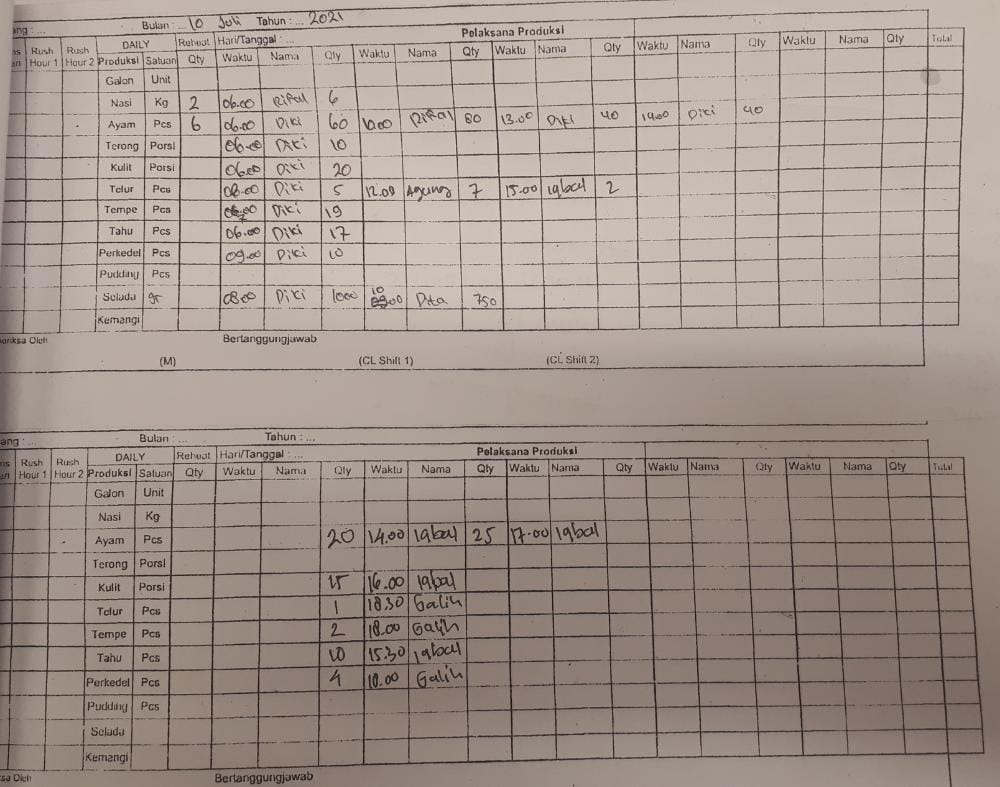 ang : ... Bulan : ... 10 Juli Tahun : ... 2021 Pelaksana Produksi
Rush Rush DAILY Reheat Hari/Tanggal : ...
Hour 1 Hour 2 Produksi Satuan Qty Waktu Nama Qty Waktu Nama Qty Waktu Nama Qty Waktu Nama Qty Waktu Nama Qty Total
Galon Unit
Nasi Kg 2 06.00 Rifal 6
Ayam Pcs 6 06.00 Diki 60 10.00 Rifal 80 13.00 Diki 40 14.00 Diki 40
Terong Porsi 06.00 Diki 10
Kulit Porsi 06.00 Diki 20
Telur Pcs 08.00 Diki 5 12.00 Agung 7 15.00 Iqbal 2
Tempe Pcs Diki 19
Tahu Pcs 06.00 Diki 17
Perkedel Pcs 09.00 Diki 10
Pudding Pcs
Selada gr 08.00 Diki 1000 10 00 Dita 750
Kemangi
riksa Oleh Bertanggungjawab
(M) (CL Shift 1) (CL Shift 2)
ang : ... Bulan : ... Tahun : ... Pelaksana Produksi
Rush Rush DAILY Reheat Hari/Tanggal : ...
Hour 1 Hour 2 Produksi Satuan Qty Waktu Nama Qty Waktu Nama Qty Waktu Nama Qty Waktu Nama Qty Waktu Nama Qty Total
Galon Unit
Nasi Kg
Ayam Pcs 20 14.00 Iqbal 25 17.00 Iqbal
Terong Porsi
Kulit Porsi 15 16.00 Iqbal
Telur Pcs 1 18.30 Galih
Tempe Pcs 2 18.00 Galih
Tahu Pcs 10 15.30 Iqbal
Perkedel Pcs 4 18.00 Galih
Pudding Pcs
Selada
Kemangi
sa Oleh Bertanggungjawab